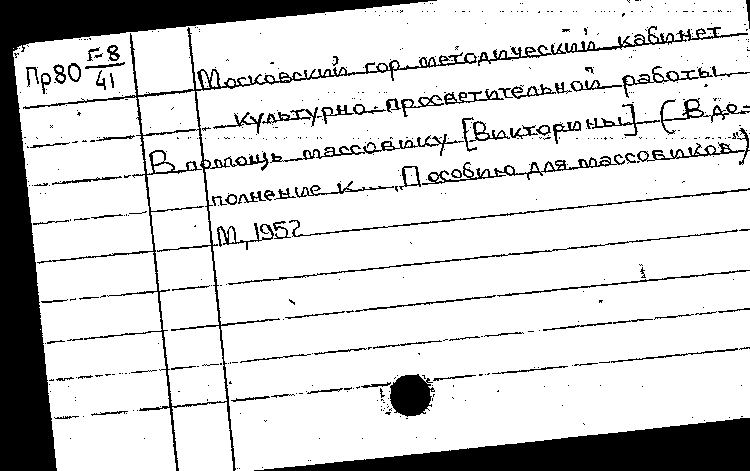 Пр80 Г-8/41
Московский гор. методический кабинет
культурно-просветительной работы
В помощь массовику [Викторины] (В до-
полнение к... „Пособию для массовиков")
М., 1952